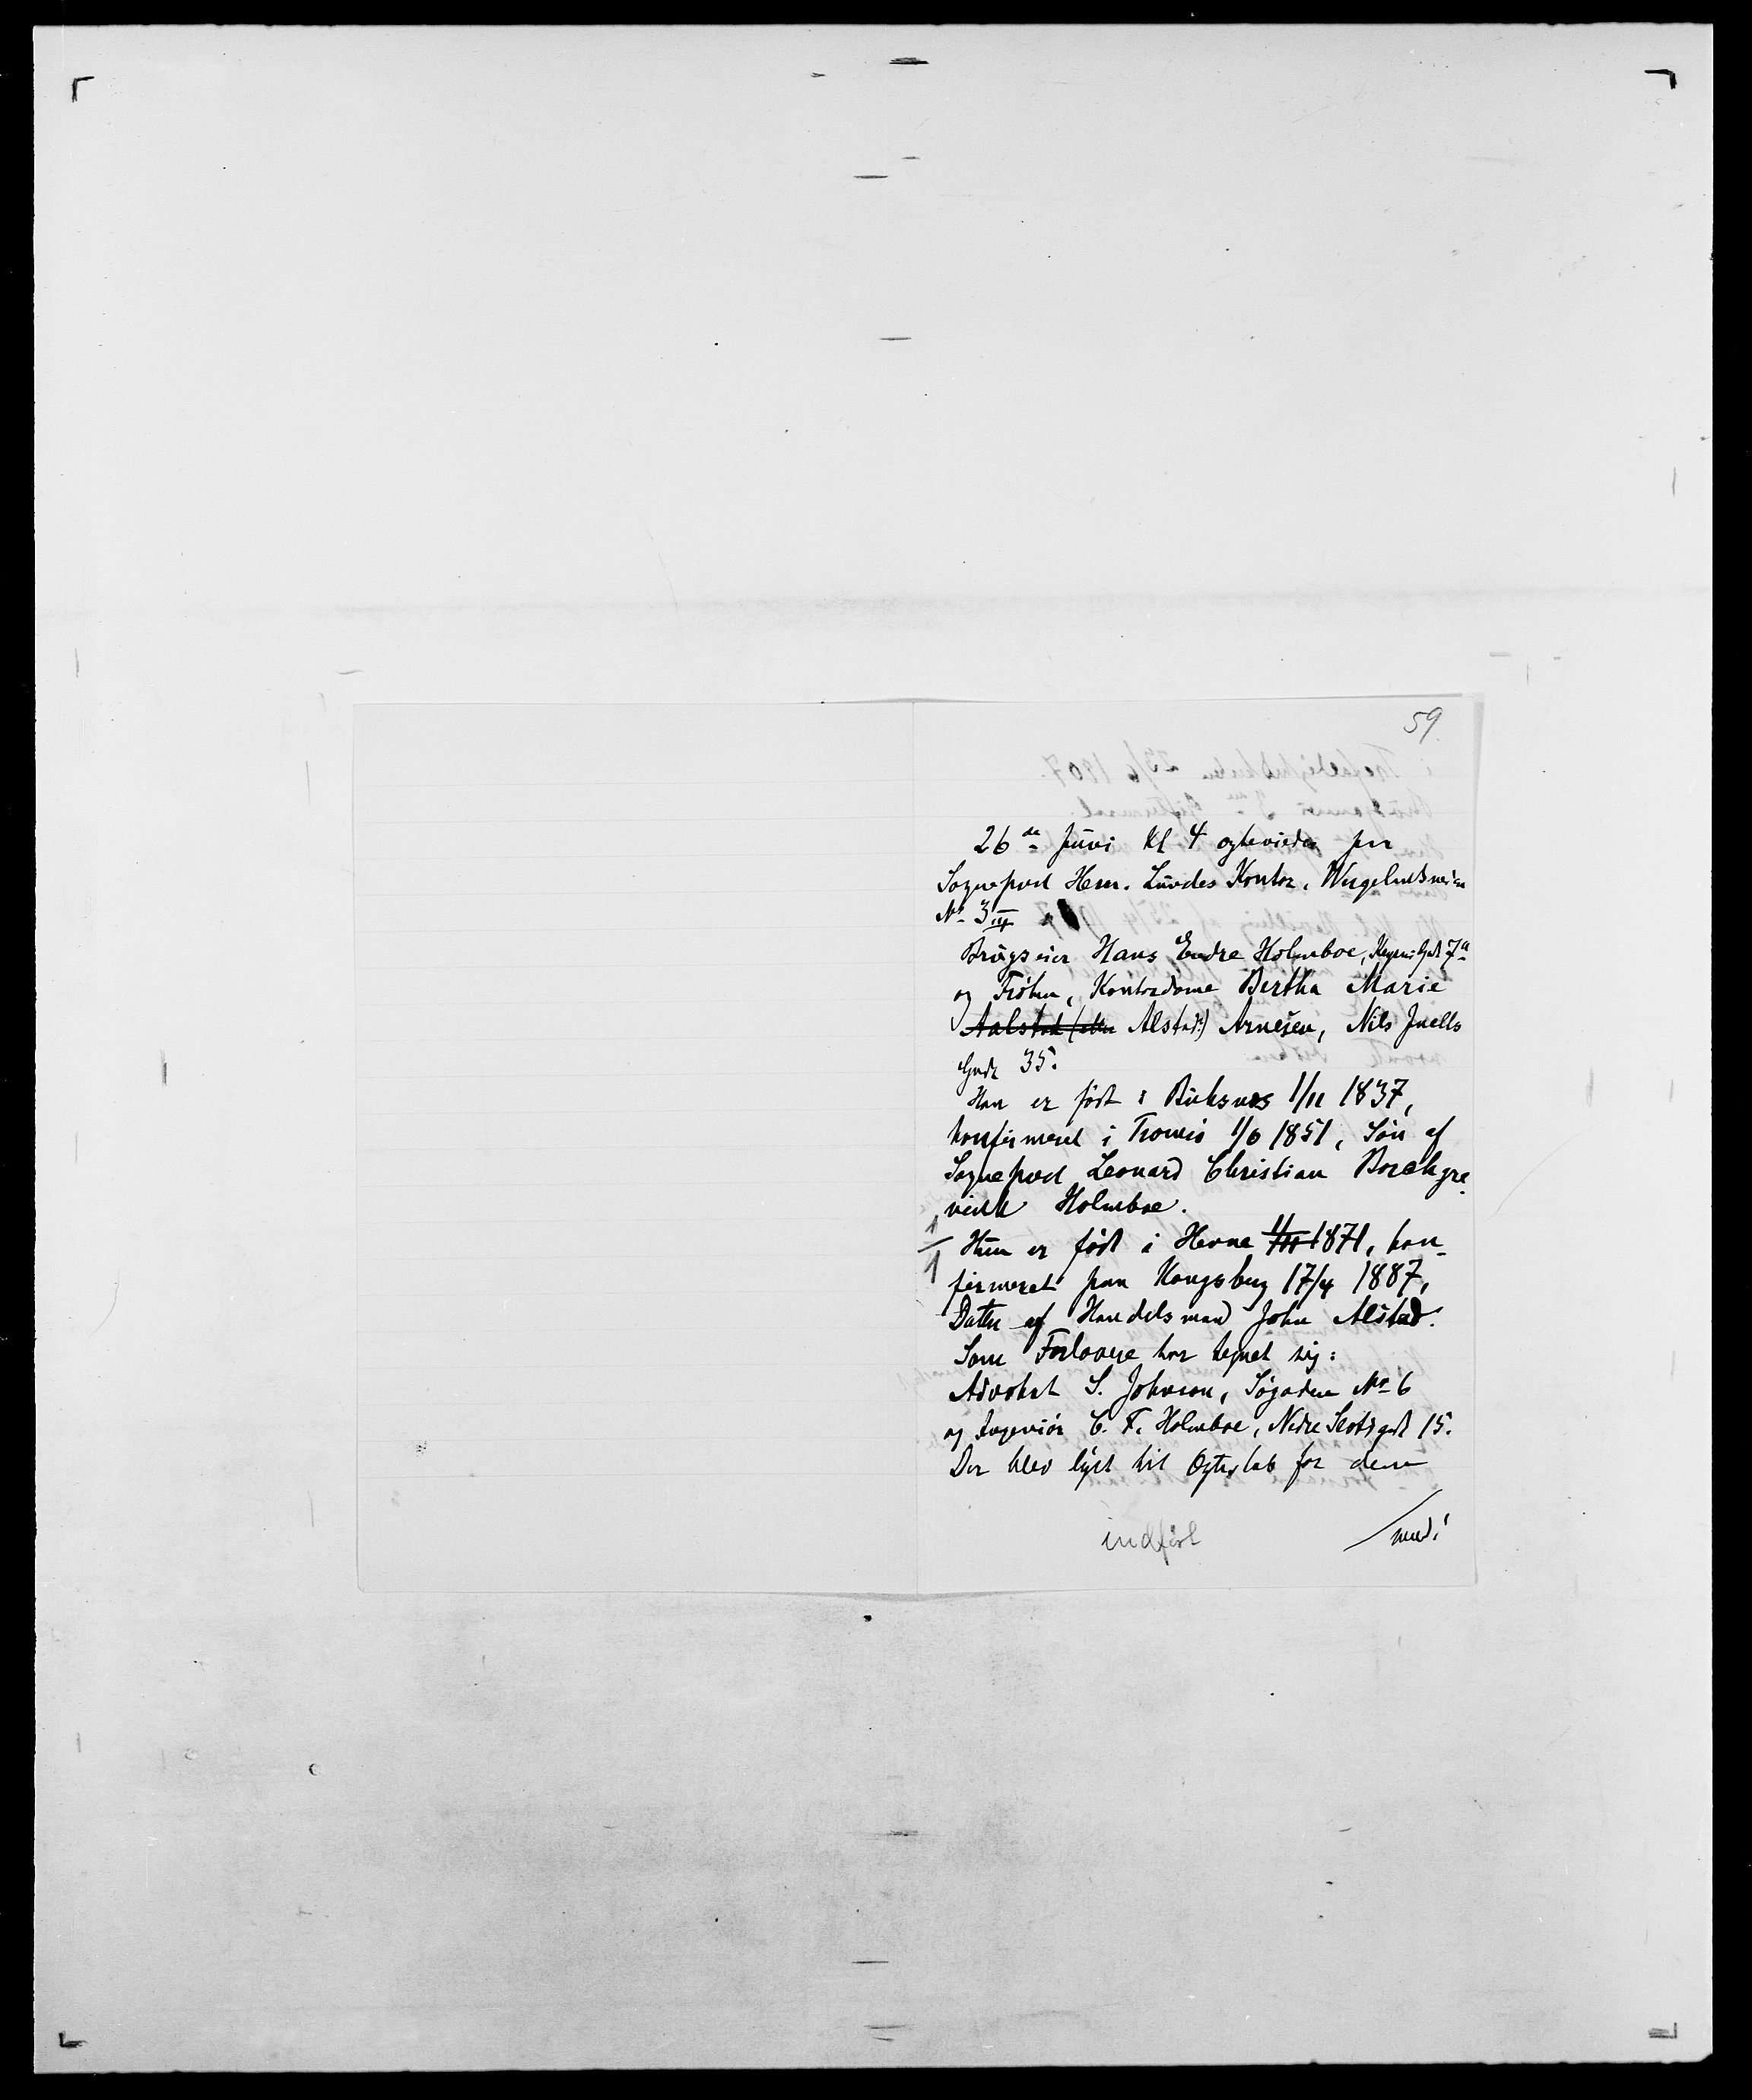 59
26de Juni Kl 4 ægtevies paa
Sognepræst Herm. Lundes Kontor, Wergelandsveien
No 3 III
Brugseier Hans Endre Holmboe, Keysers Gade 7a
og Frøken, Kontordame Bertha Marie
Aalstad (eller Alstad:) Arnesen, Nils Juells
Gade 35.
Han er født i Buksnes 1/11 1837,
konfirmeret i Tromsø 1/6 1851, Søn af
Sognepræst Leonard Christian Borchgre-
vink Holmboe.
1/1 Hun er født i Hevne 1/11 1871, kon-
firmeret paa Kongsberg 17/4 1887,
Datter af Handelsmand John Alstad.
Som Forlovere har tegnet sig:
Advokat S. Johnson, Søgaden No 6
og Ingeniør C. F. Holmboe, Nedre Slotsgade 15.
Der blev lyst til Ægteskab for dem
indført
vend!